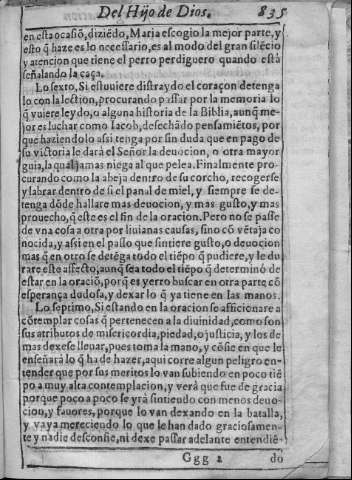 Del Hijo de Dios. 835
en esta ocasiõ, diziẽdo, Maria escogio la mejor parte, y
esto q̃ haze es lo necessario, es al modo del gran silẽcio
y atencion que tiene el perro perdiguero quando està
señalando la caça.
Lo sexto, Si estuuiere distraydo el coraçon detenga
lo con la lection, procurando passar por la memoria lo
q̃ vuiere leydo, o alguna historia de la Biblia, aunq̃ me-
jor es luchar como Iacob, desechãdo pensamiẽtos, por
que haziendolo assi tenga por sin duda que en pago de
su victoria le darà el Señor la deuocion, o otra mayor
guia, la qual jamas niega al que pelea. Finalmente pro-
curando como la abeja dentro de su corcho, recogerse
y labrar dentro de si el panal de miel, y siempre se de-
tenga dõde hallare mas deuocion, y mas gusto, y mas
prouecho, q̃ este es el fin de la oracion. Pero no se passe
de vna cosa a otra por liuianas causas, sino cõ vẽtaja co
nocida, y assi en el passo que sintiere gusto, o deuocion
mas q̃ en otro se detẽga todo el tiẽpo q̃ pudiere, y le du
rare este affecto, aunq̃ sea todo el tiẽpo q̃ determinò de
estar en la oraciõ, porq̃ es yerro buscar en otra parte cõ
esperança dudosa, y dexar lo q̃ ya tiene en las manos.
Lo septimo, Si estando en la oracion se afficionare a
cõtemplar cosas q̃ pertenecen a la diuinidad, como son
sus atributos de misericordia, piedad, o justicia, y los de
mas dexese lleuar, pues toma la mano, y cõfie en que le
enseñarà lo q̃ ha de hazer, aqui corre algun peligro en-
tender que por sus meritos lo van subiendo en poco tiẽ
po a muy alta contemplacion, y verà que fue de gracia
porque poco a poco se yrà sintiendo con menos deuo-
cion, y fauores, porque lo van dexando en la batalla,
y vaya mereciendo lo que le han dado graciosamen-
te y nadie desconfie, ni dexe passar adelante entendiẽ-
Ggg 2 do